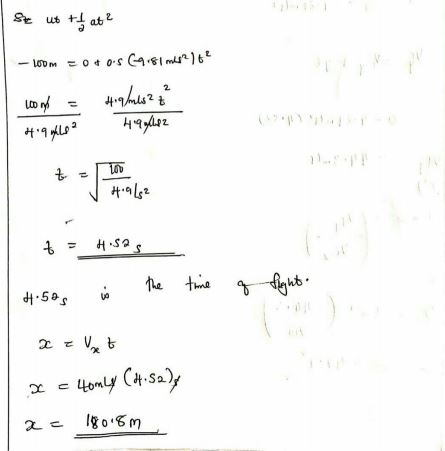 S= ut + 1/2 at²
- 100m = 0 + 0.5 (-9.81 m/s²) t²
100 m / 4.9 m/s² = 4.9 m/s² t² / 4.9 m/s²
t = √(100 / 4.9/s²)
t = 4.52s
4.52s is the time of flight.
x = Vx t
x = 40m/s (4.52)s
x = 180.8m